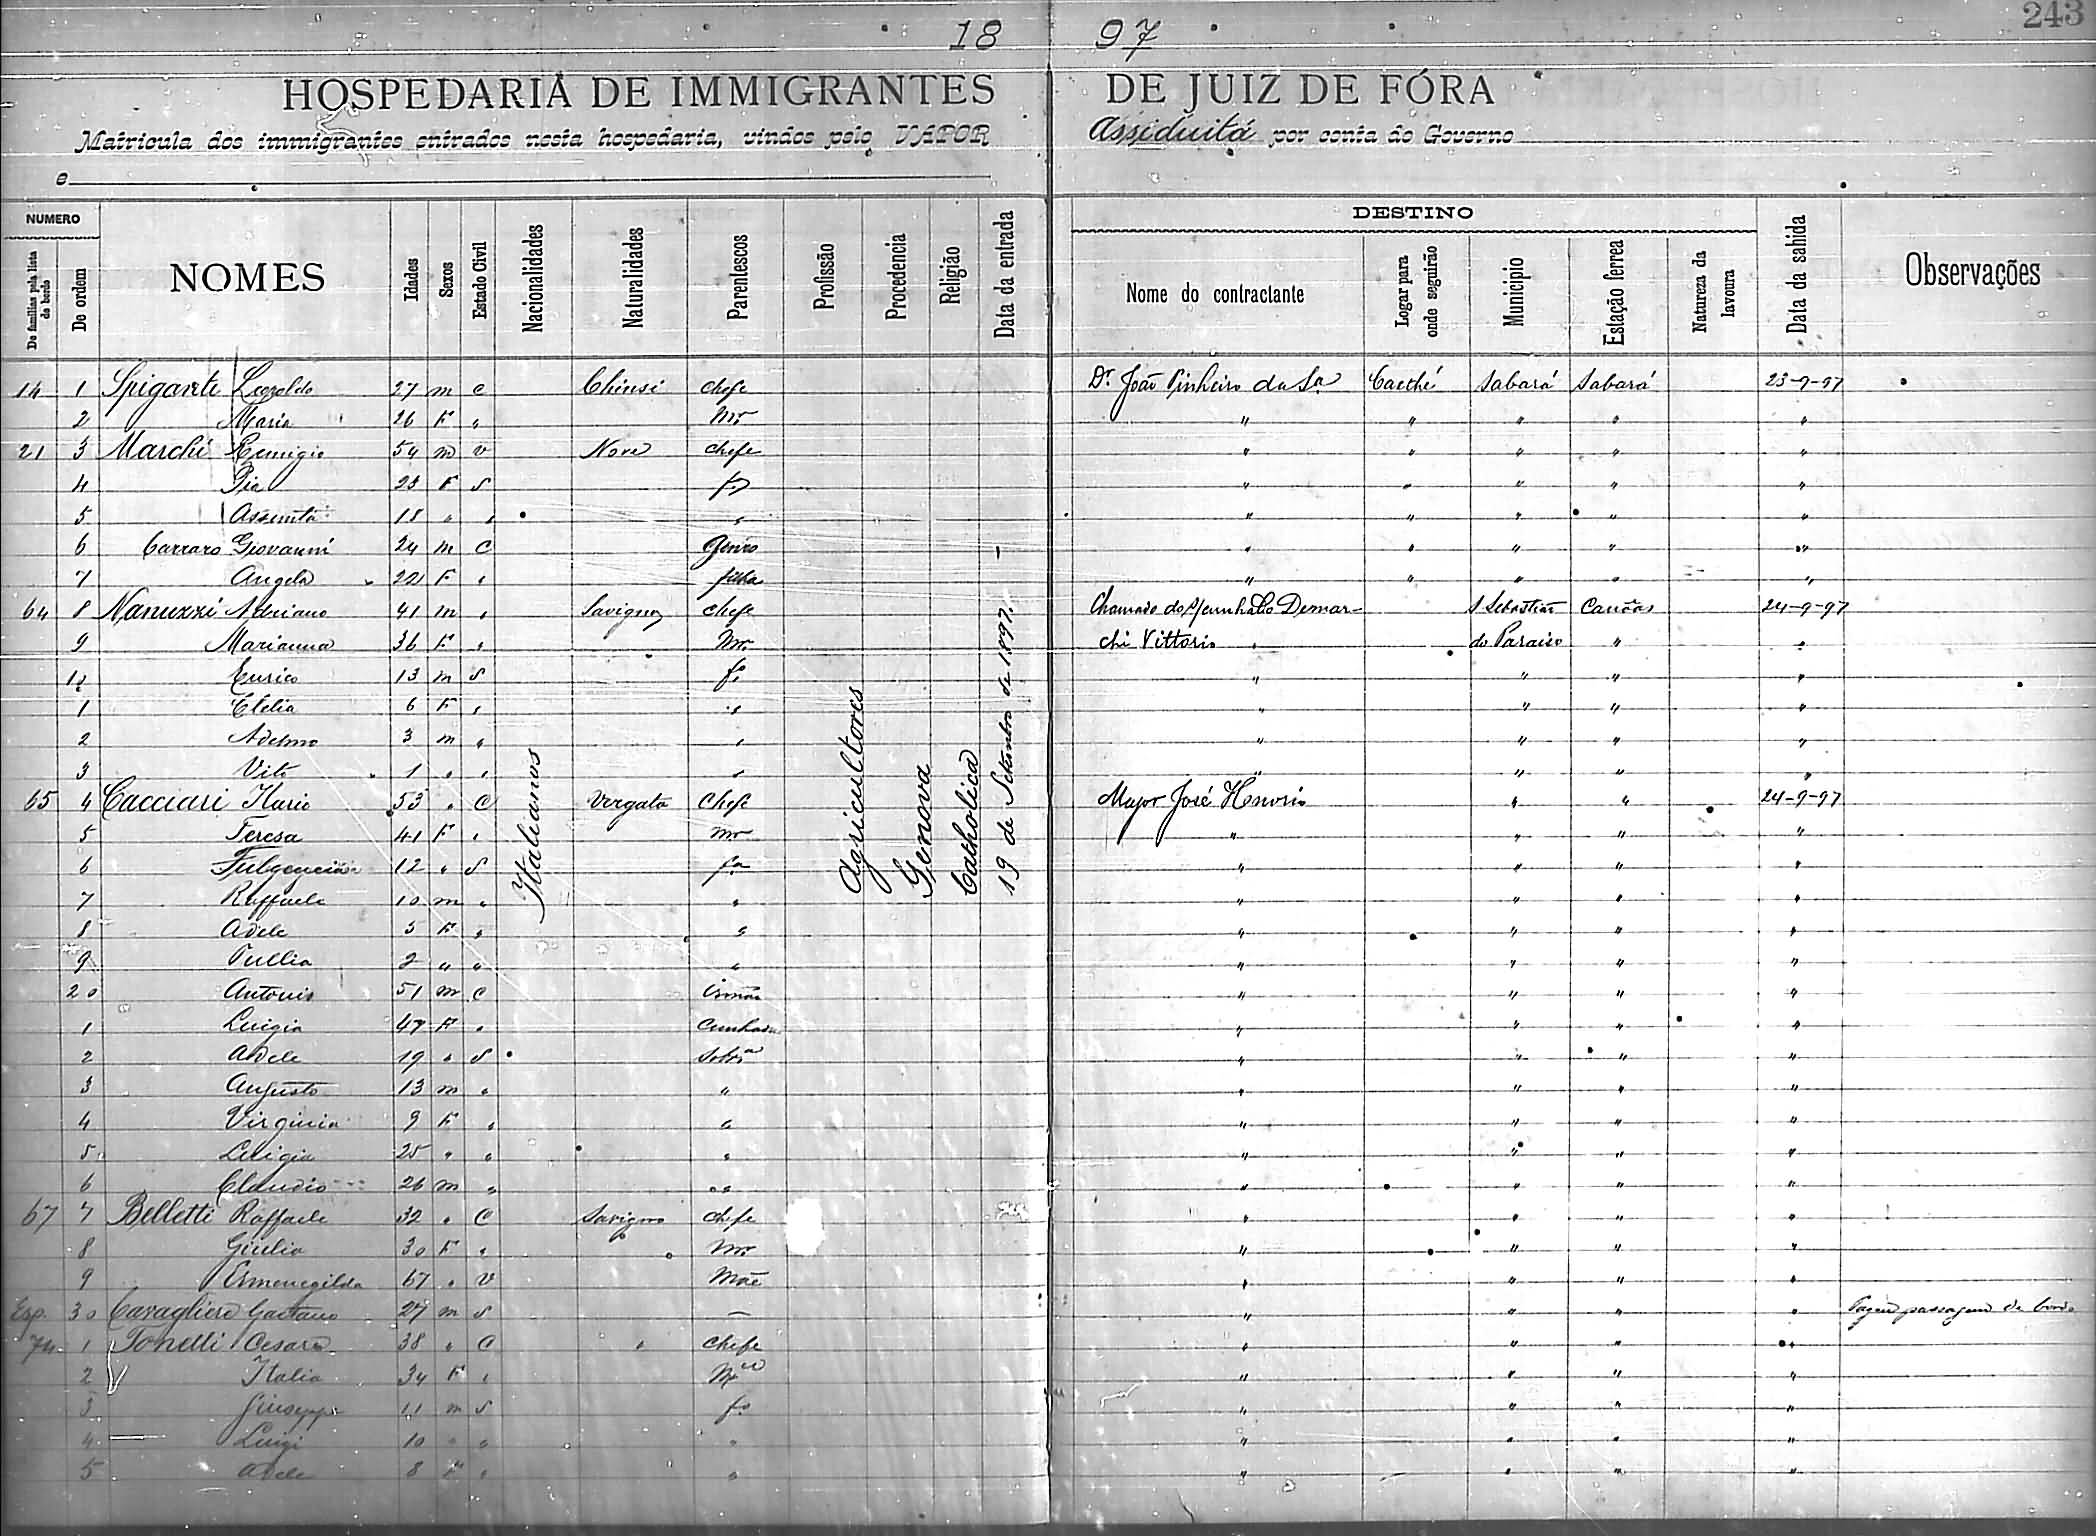 243
18 97
HOSPEDARIA DE IMMIGRANTES DE JUIZ DE FÓRA
Matricula dos immigrantes entrados nesta hospedaria, vindos pelo VAPOR Assiduitá por conta do Governo
e
NUMERO De familias pela lista de bordo De ordem NOMES Idades Sexos Estado Civil Nacionalidades Naturalidades Parentescos Profissão Procedencia Religião Data da entrada DESTINO Nome do contractante Logar para onde seguirão Municipio Estação ferrea Natureza da lavoura Data da sahida Observações
14 1 Spigarite Leopoldo 27 m C Chinsi Chefe Dr. João Pinheiro da Sa Caethé Sabará Sabará 23-9-97
2 Maria 26 F " Mr " " " " "
21 3 Marchi Remigio 54 m v Nove Chefe " " " " "
4 Pia 23 F S fa " " " " "
5 Assunta 18 " " " " " " " "
6 Carraro Giovanni 24 m C Genro " " " " "
7 Angela 22 F " filha " " " " "
64 8 Nanuzzi Adriano 41 m " Savigno Chefe Chamado do Demar- S Sebastião Canôas 24-9-97
9 Marianna 36 F " Mr. chi Vittorio " do Paraiso " "
10 Enrico 13 m S fo " " " "
1 Clelia 6 F " " " " " "
2 Adelmo 3 m " " " " " "
3 Vito 1 " " " " " " "
65 4 Cacciari Ilario 53 " C Vergato Chefe Major José Honorio " " 24-9-97
5 Teresa 41 F " mr " " " "
6 Fulgencia 12 " S fa " " " "
7 Raffaele 10 m " " " " " "
8 Adele 5 F " " " " " "
9 Tullia 2 " " " " " " "
20 Antonio 51 m C irmão " " " "
1 Luigia 47 F " Cunhada " " " "
2 Adele 19 " S Sobra " " " "
3 Augusto 13 m " " " " " "
4 Virginia 9 F " " " " " "
5 Luigia 25 " " " " " " "
6 Claudio 26 m " " " " " "
67 7 Belletti Raffaele 32 " C Savigno chefe " " " "
8 Giulia 30 F " Mr. " " " "
9 Ermenegilda 67 " v Mãe " " " "
Esp. 30 Cavagliere Gaetano 27 m S — " " " " Pagou passagem de bordo
74 1 Tonelli Cesare 38 " C " Chefe " " " "
2 Italia 34 F " Mer " " " "
3 Giuseppe 11 m S fo " " " "
4 Luigi 10 " " " " " " "
5 Adele 8 F " " " " " "
Italianos
Agricultores
Genova
Catholica
19 de Setembro de 1897.